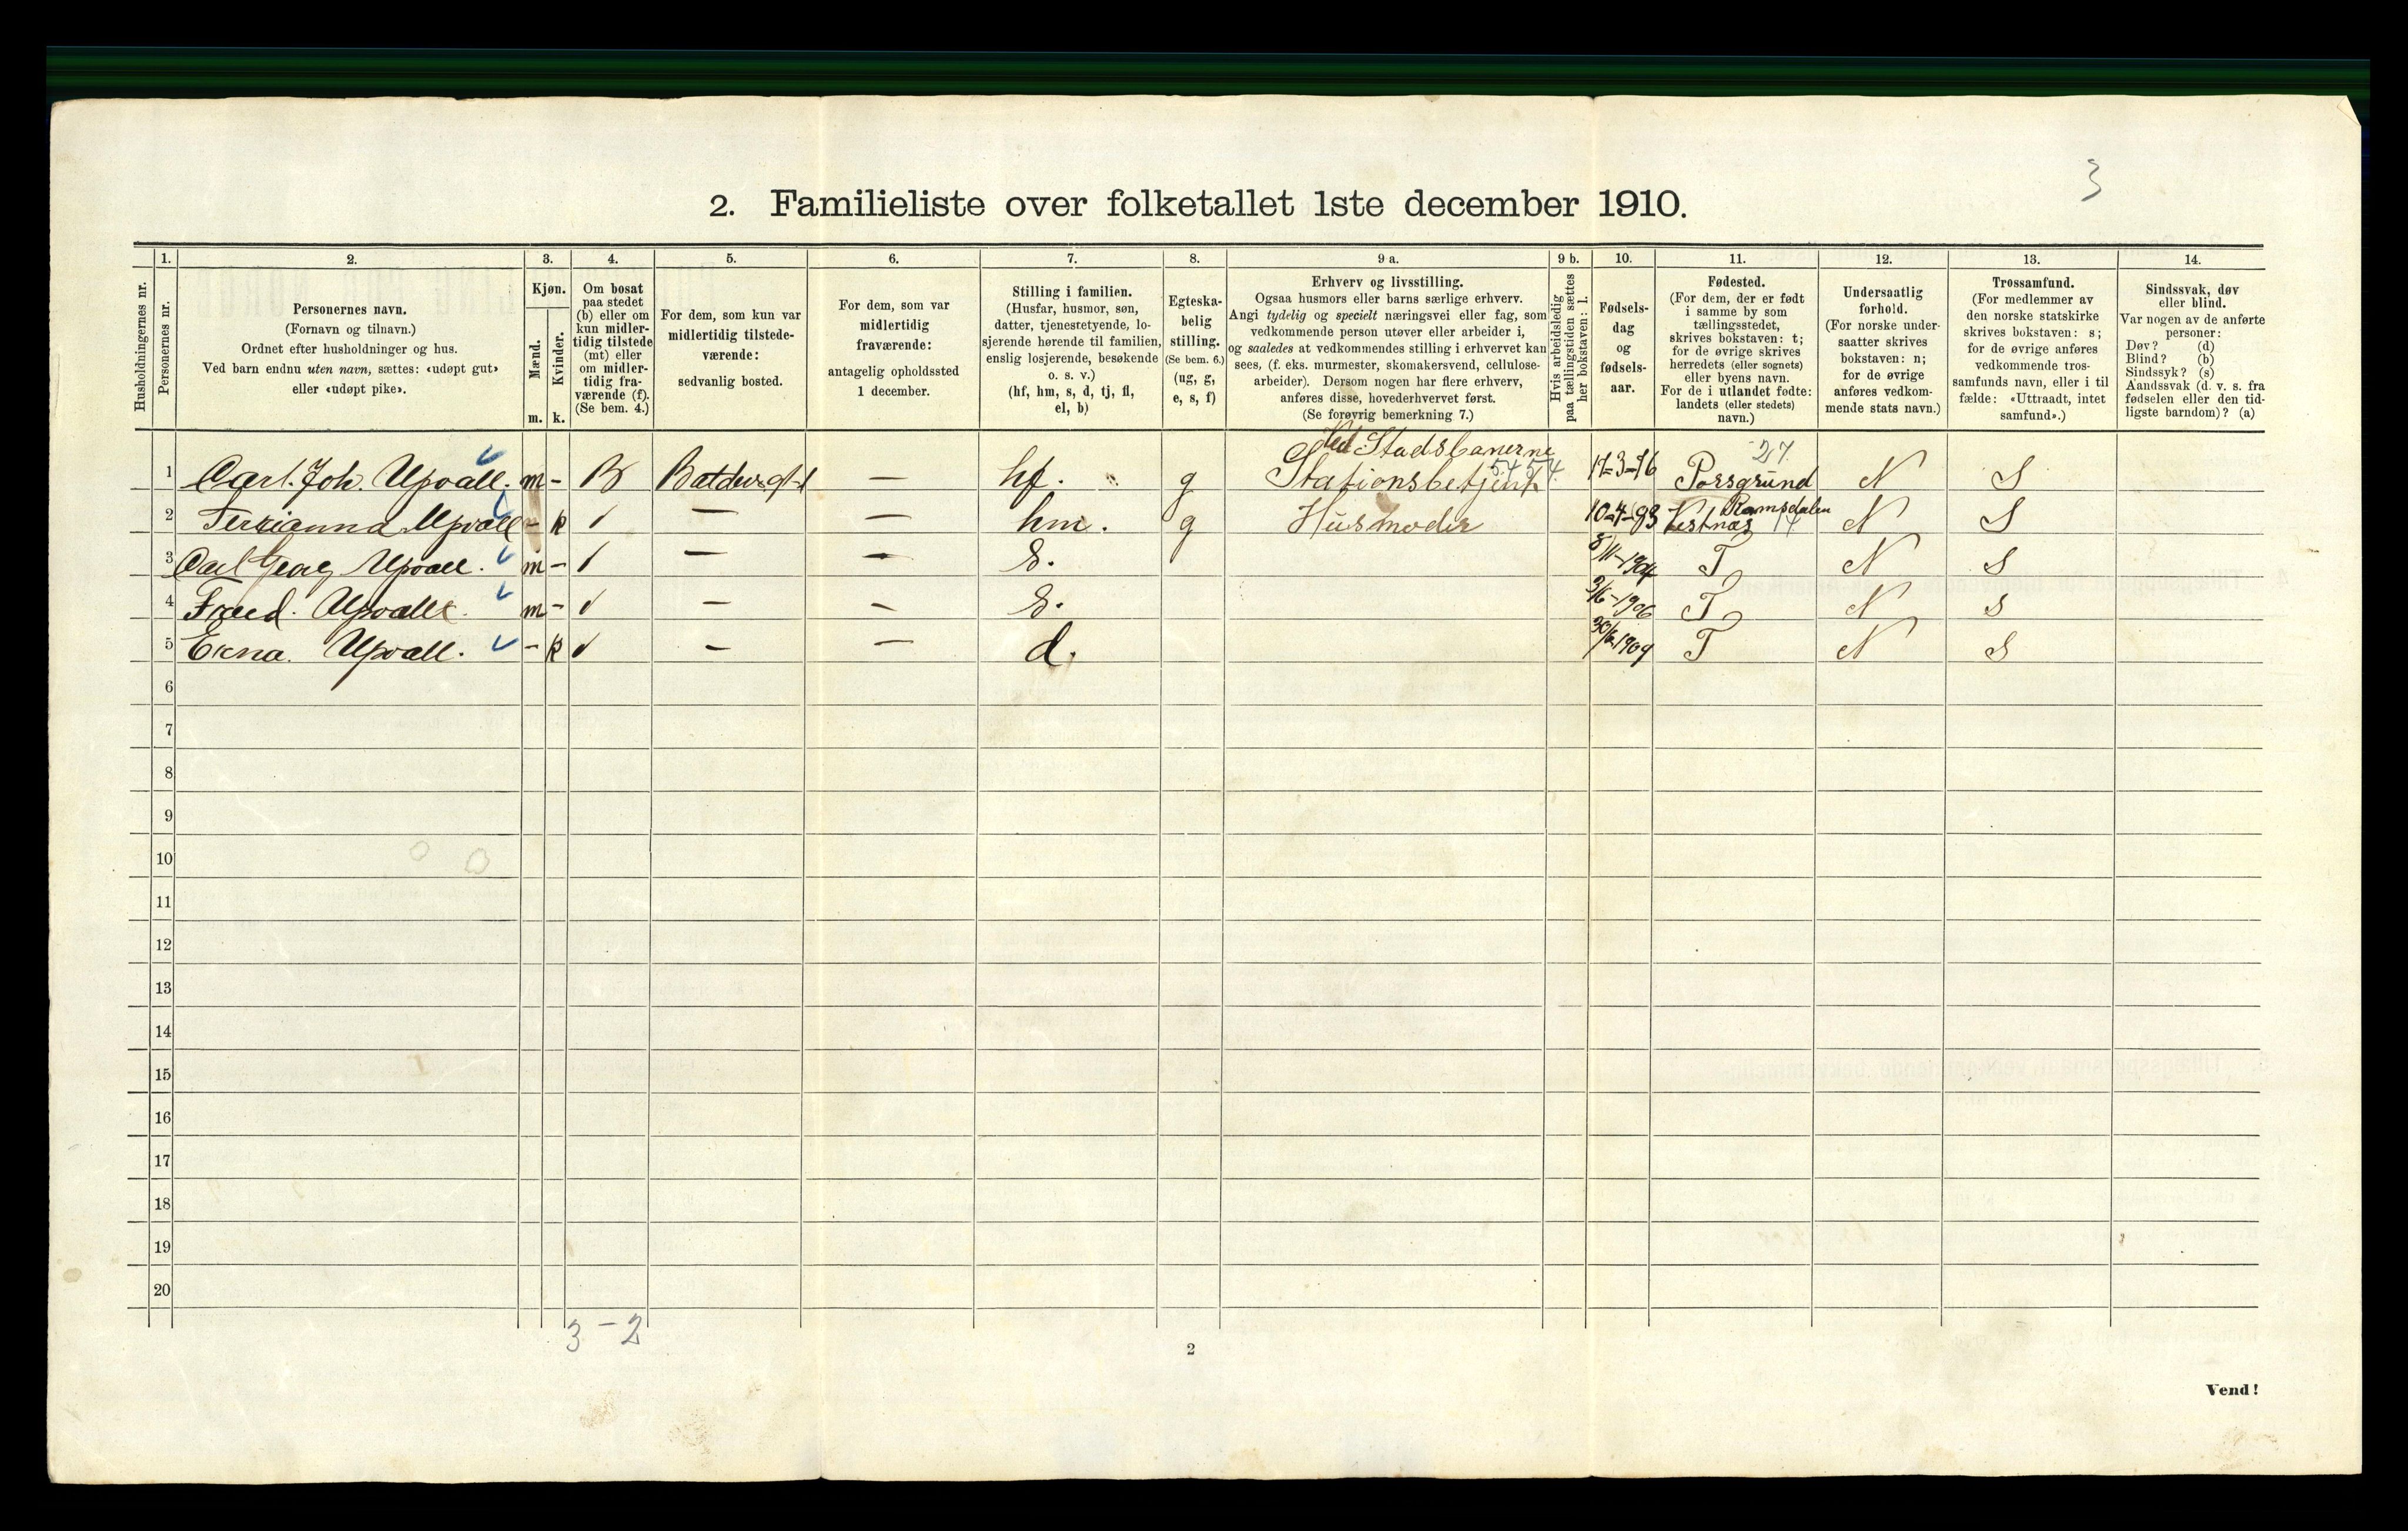 3
2. Familieliste over folketallet 1ste december 1910.
Husholdningernes nr.
1. Personernes nr.
2. Personernes navn.
(Fornavn og tilnavn.)
Ordnet efter husholdninger og hus.
Ved barn endnu uten navn, sættes: «udøpt gut»
eller «udøpt pike».
3. Kjøn.
Mænd. m.
Kvinder. k.
4. Om bosat
paa stedet
(b) eller om
kun midler-
tidig tilstede
(mt) eller
om midler-
tidig fra-
værende (f).
(Se bem. 4.)
5. For dem, som kun var
midlertidig tilstede-
værende:
sedvanlig bosted.
6. For dem, som var
midlertidig
fraværende:
antagelig opholdssted
1 december.
7. Stilling i familien.
(Husfar, husmor, søn,
datter, tjenestetyende, lo-
sjerende hørende til familien,
enslig losjerende, besøkende
o. s. v.)
(hf, hm, s, d, tj, fl,
el, b)
8. Egteska-
belig
stilling.
(Se bem. 6.)
(ug, g,
e, s, f)
9 a. Erhverv og livsstilling.
Ogsaa husmors eller barns særlige erhverv.
Angi tydelig og specielt næringsvei eller fag, som
vedkommende person utøver eller arbeider i,
og saaledes at vedkommendes stilling i erhvervet kan
sees, (f. eks. murmester, skomakersvend, cellulose-
arbeider). Dersom nogen har flere erhverv,
anføres disse, hovederhvervet først.
(Se forøvrig bemerkning 7.)
9 b. Hvis arbeidsledig
paa tællingstiden sættes
her bokstaven: l.
10. Fødsels-
dag
og
fødsels-
aar.
11. Fødested.
(For dem, der er født
i samme by som
tællingsstedet,
skrives bokstaven: t;
for de øvrige skrives
herredets (eller sognets)
eller byens navn.
For de i utlandet fødte:
landets (eller stedets)
navn.)
12. Undersaatlig
forhold.
(For norske under-
saatter skrives
bokstaven: n;
for de øvrige
anføres vedkom-
mende stats navn.)
13. Trossamfund.
(For medlemmer av
den norske statskirke
skrives bokstaven: s;
for de øvrige anføres
vedkommende tros-
samfunds navn, eller i til
fælde: «Uttraadt, intet
samfund».)
14. Sindssvak, døv
eller blind.
Var nogen av de anførte
personer:
Døv? (d)
Blind? (b)
Sindssyk? (s)
Aandssvak (d. v. s. fra
fødselen eller den tid-
ligste barndom)? (a)
Ved Stadsbanerne 27.
1 Carl. Joh. Upvall. m - B — hf. g Stationsbetjent Porsgrund N S
2 Upvall - k — — hm. g Husmoder 10-4-83 Vestnæs Romsdalen N S
3 Carl Georg Upvall. m - — — S. 8/11-1904 T N S
4 Upvall. m - — — S. 3/6-1906 T N S
5 Upvall. - k — — d. 30/6 1909 T N S
6
7
8
9
10
11
12
13
14
15
16
17
18
19
20
3 - 2
2
Vend!